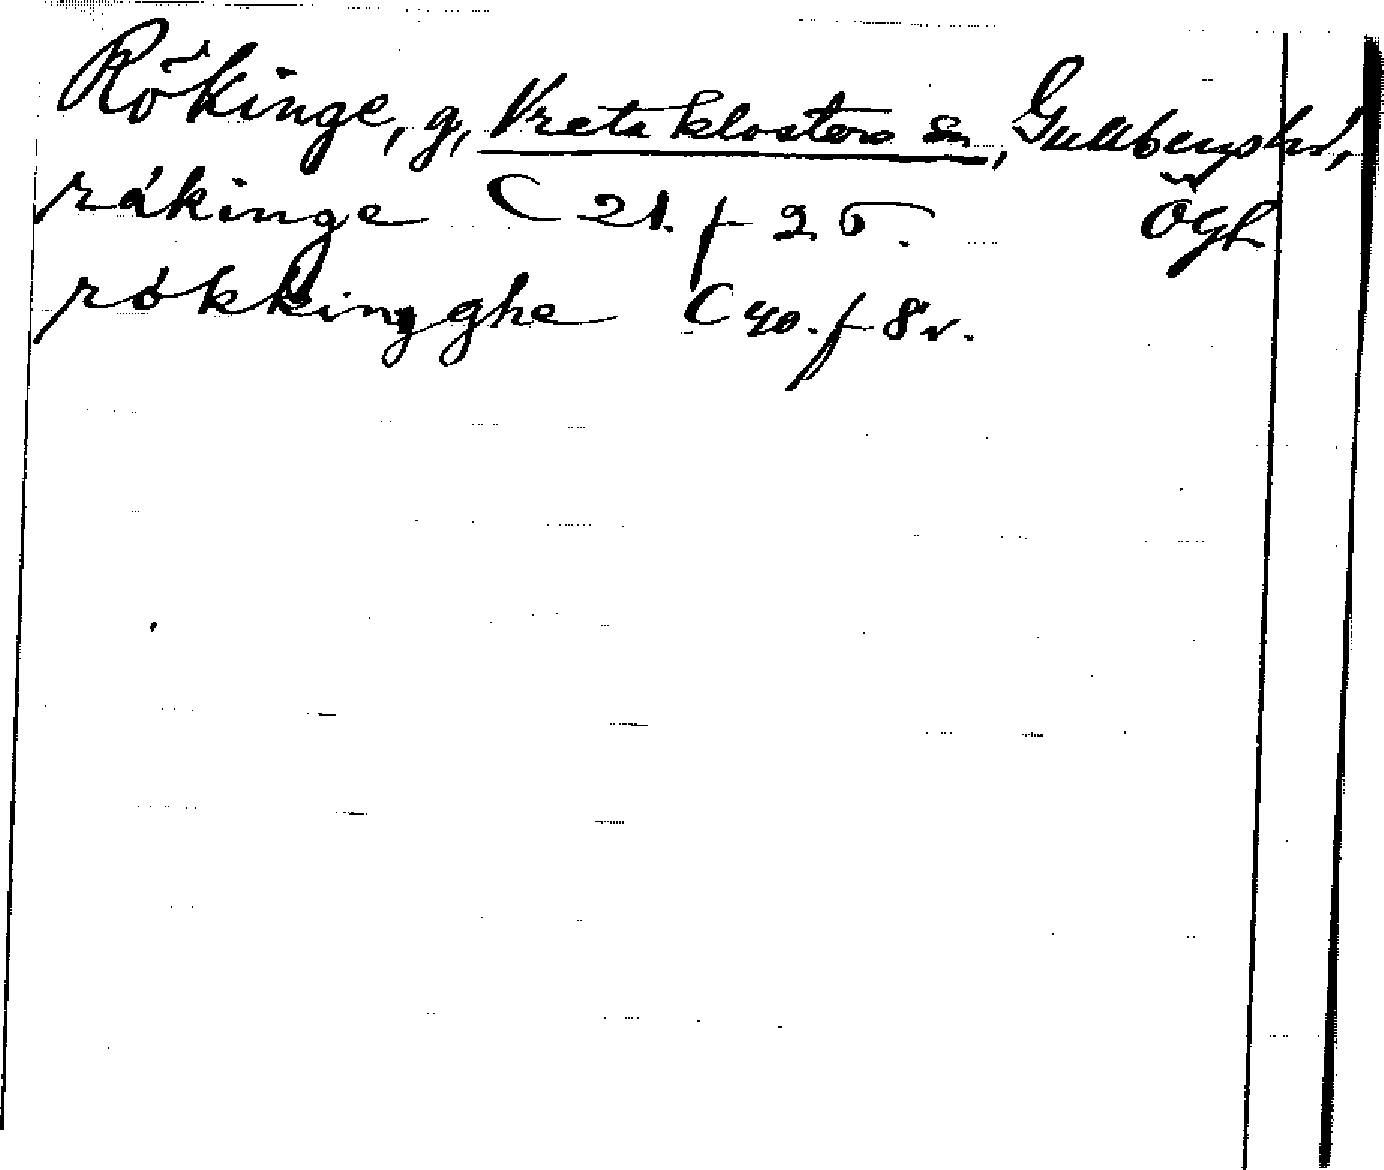 Rökinge, g, Vreta klosters sn, Gullbergs hd,
rákinge C 21. f 25. Ögl
rókkingghe C 40. f 8v.